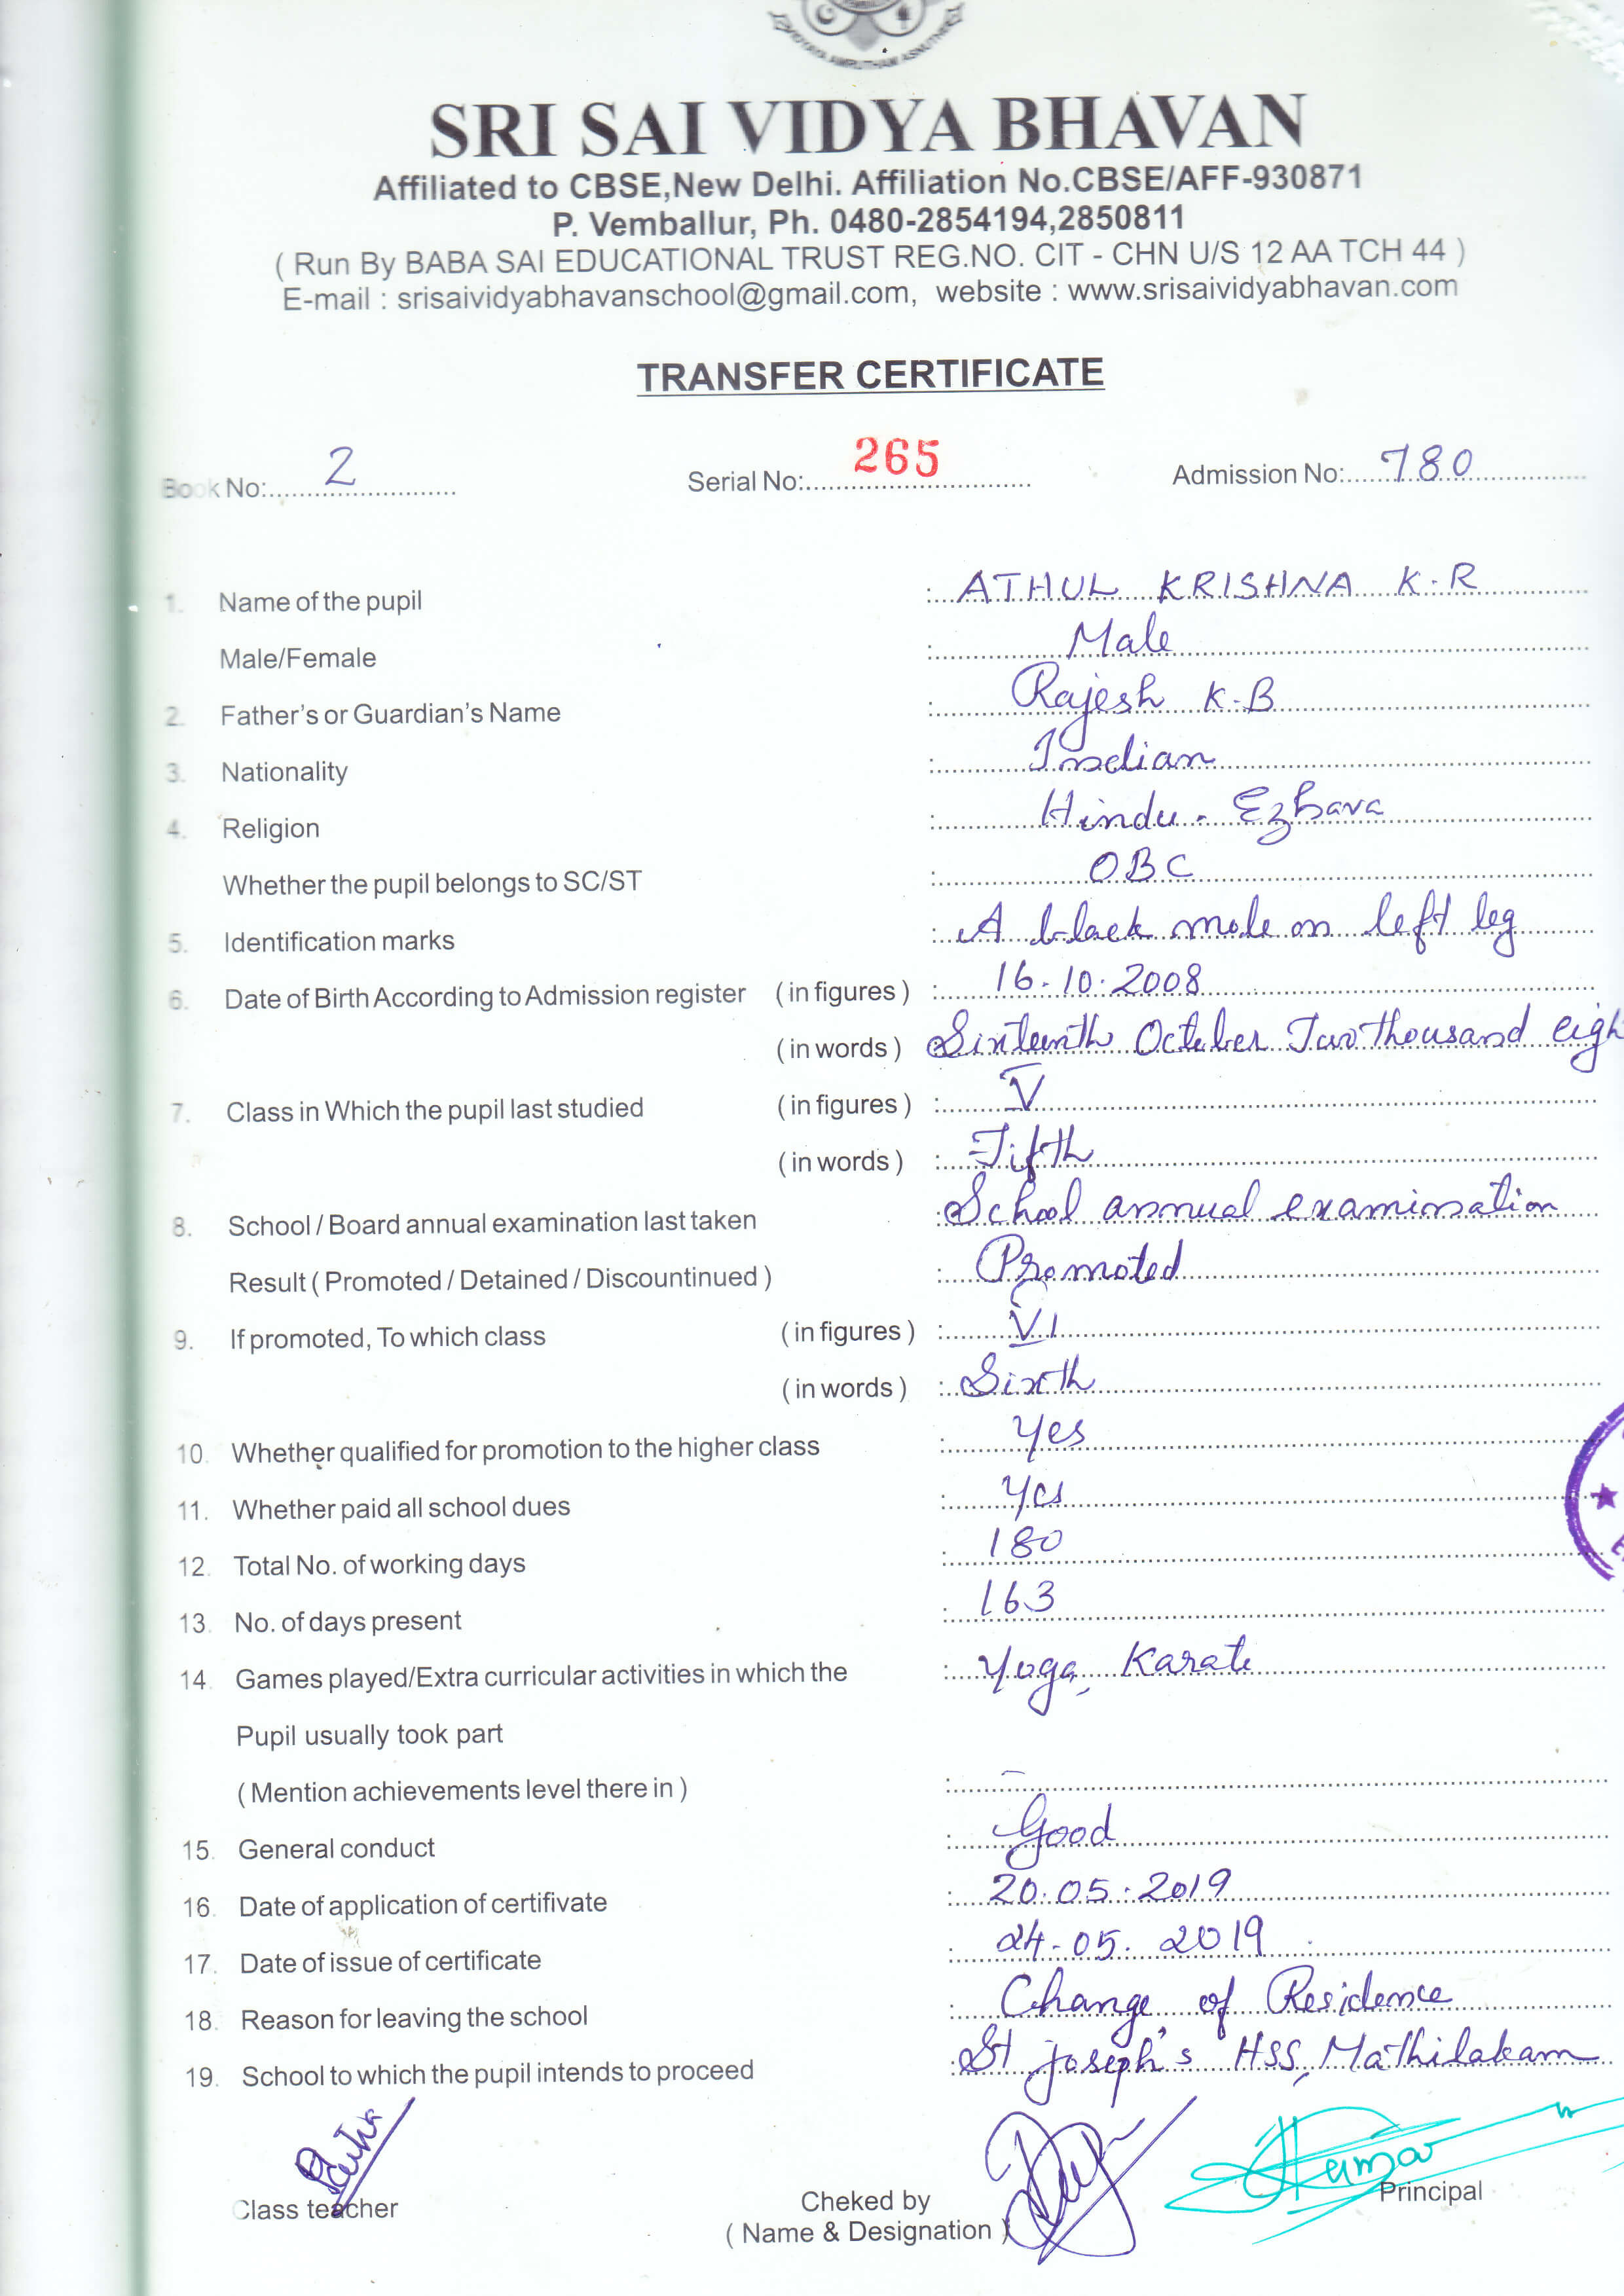 SRI SAI VIDYA BHAVAN
Affiliated to CBSE,New Delhi. Affiliation No.CBSE/AFF-930871
P. Vemballur, Ph. 0480-2854194,2850811
( Run By BABA SAI EDUCATIONAL TRUST REG.NO. CIT - CHN U/S 12 AA TCH 44 )
E-mail : srisaividyabhavanschool@gmail.com, website : www.srisaividyabhavan.com
TRANSFER CERTIFICATE
Book No: 2 Serial No: 265 Admission No: 780
1. Name of the pupil : ATHUL KRISHNA K.R
Male/Female : Male
2. Father's or Guardian's Name : Rajesh K.B
3. Nationality : Indian
4. Religion : Hindu - Ezhava
Whether the pupil belongs to SC/ST : OBC
5. Identification marks : A black mole on left leg
6. Date of Birth According to Admission register ( in figures ) : 16.10.2008
( in words ) Sixteenth October Two thousand eigh
7. Class in Which the pupil last studied ( in figures ) : V
( in words ) : Fifth
8. School / Board annual examination last taken : School annual examination
Result ( Promoted / Detained / Discountinued ) : Promoted
9. If promoted, To which class ( in figures ) : VI
( in words ) : Sixth
10. Whether qualified for promotion to the higher class : Yes
11. Whether paid all school dues : Yes
12. Total No. of working days : 180
13. No. of days present : 163
14. Games played/Extra curricular activities in which the : Yoga, Karate
Pupil usually took part
( Mention achievements level there in ) : –
15. General conduct : Good
16. Date of application of certifivate : 20.05.2019
17. Date of issue of certificate : 24-05.2019
18. Reason for leaving the school : Change of Residence
19. School to which the pupil intends to proceed : St Joseph's HSS, Mathilakam
Class teacher Cheked by Principal
( Name & Designation )